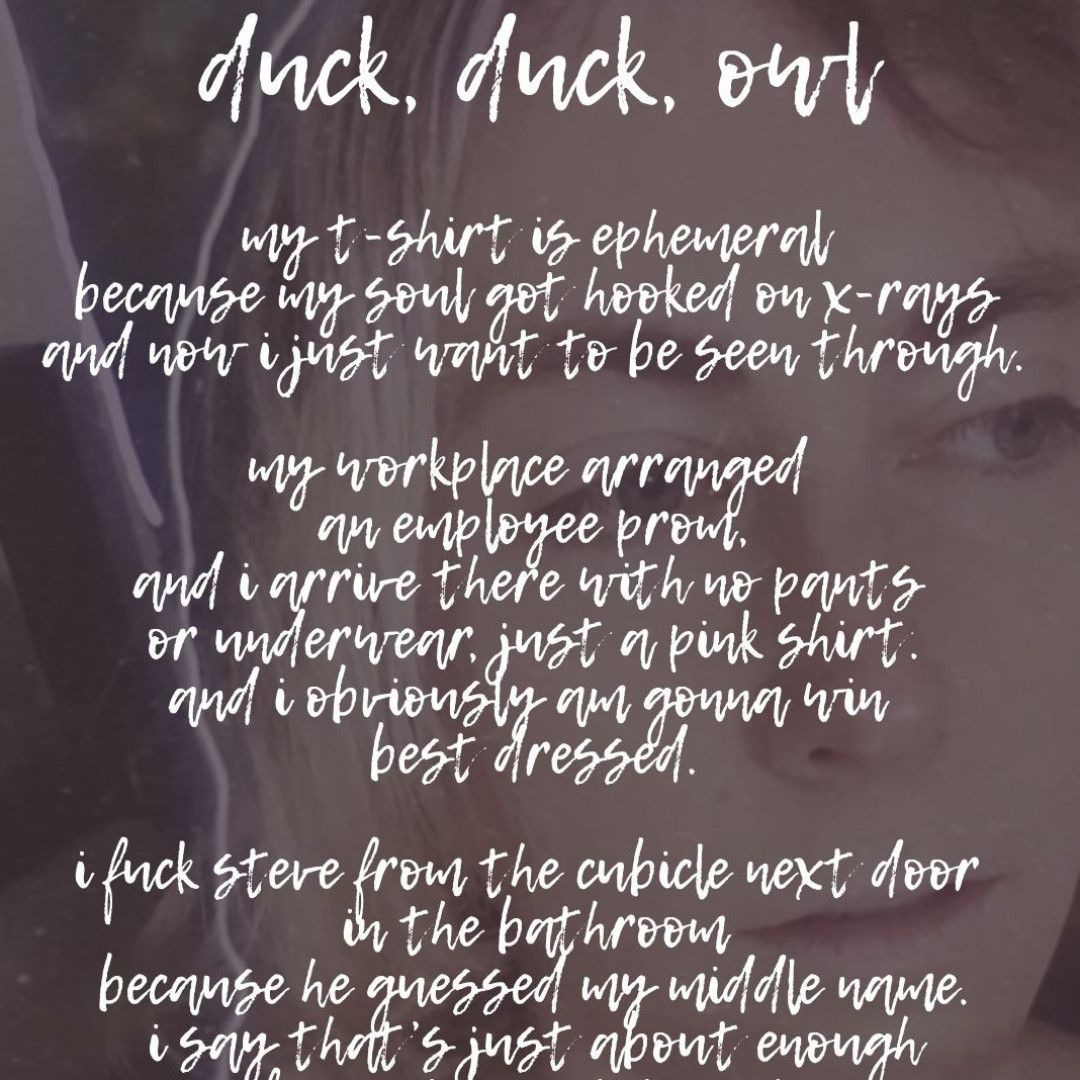 duck, duck, owl
my t-shirt is ephemeral
because my soul got hooked on x-rays
and now i just want to be seen through.
my workplace arranged
an employee prom,
and i arrive there with no pants
or underwear, just a pink shirt.
and i obviously am gonna win
best dressed.
i fuck steve from the cubicle next door
in the bathroom
because he guessed my middle name.
i say that's just about enough